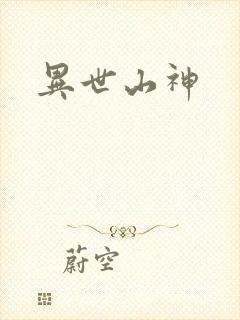 異世山神
蔚空